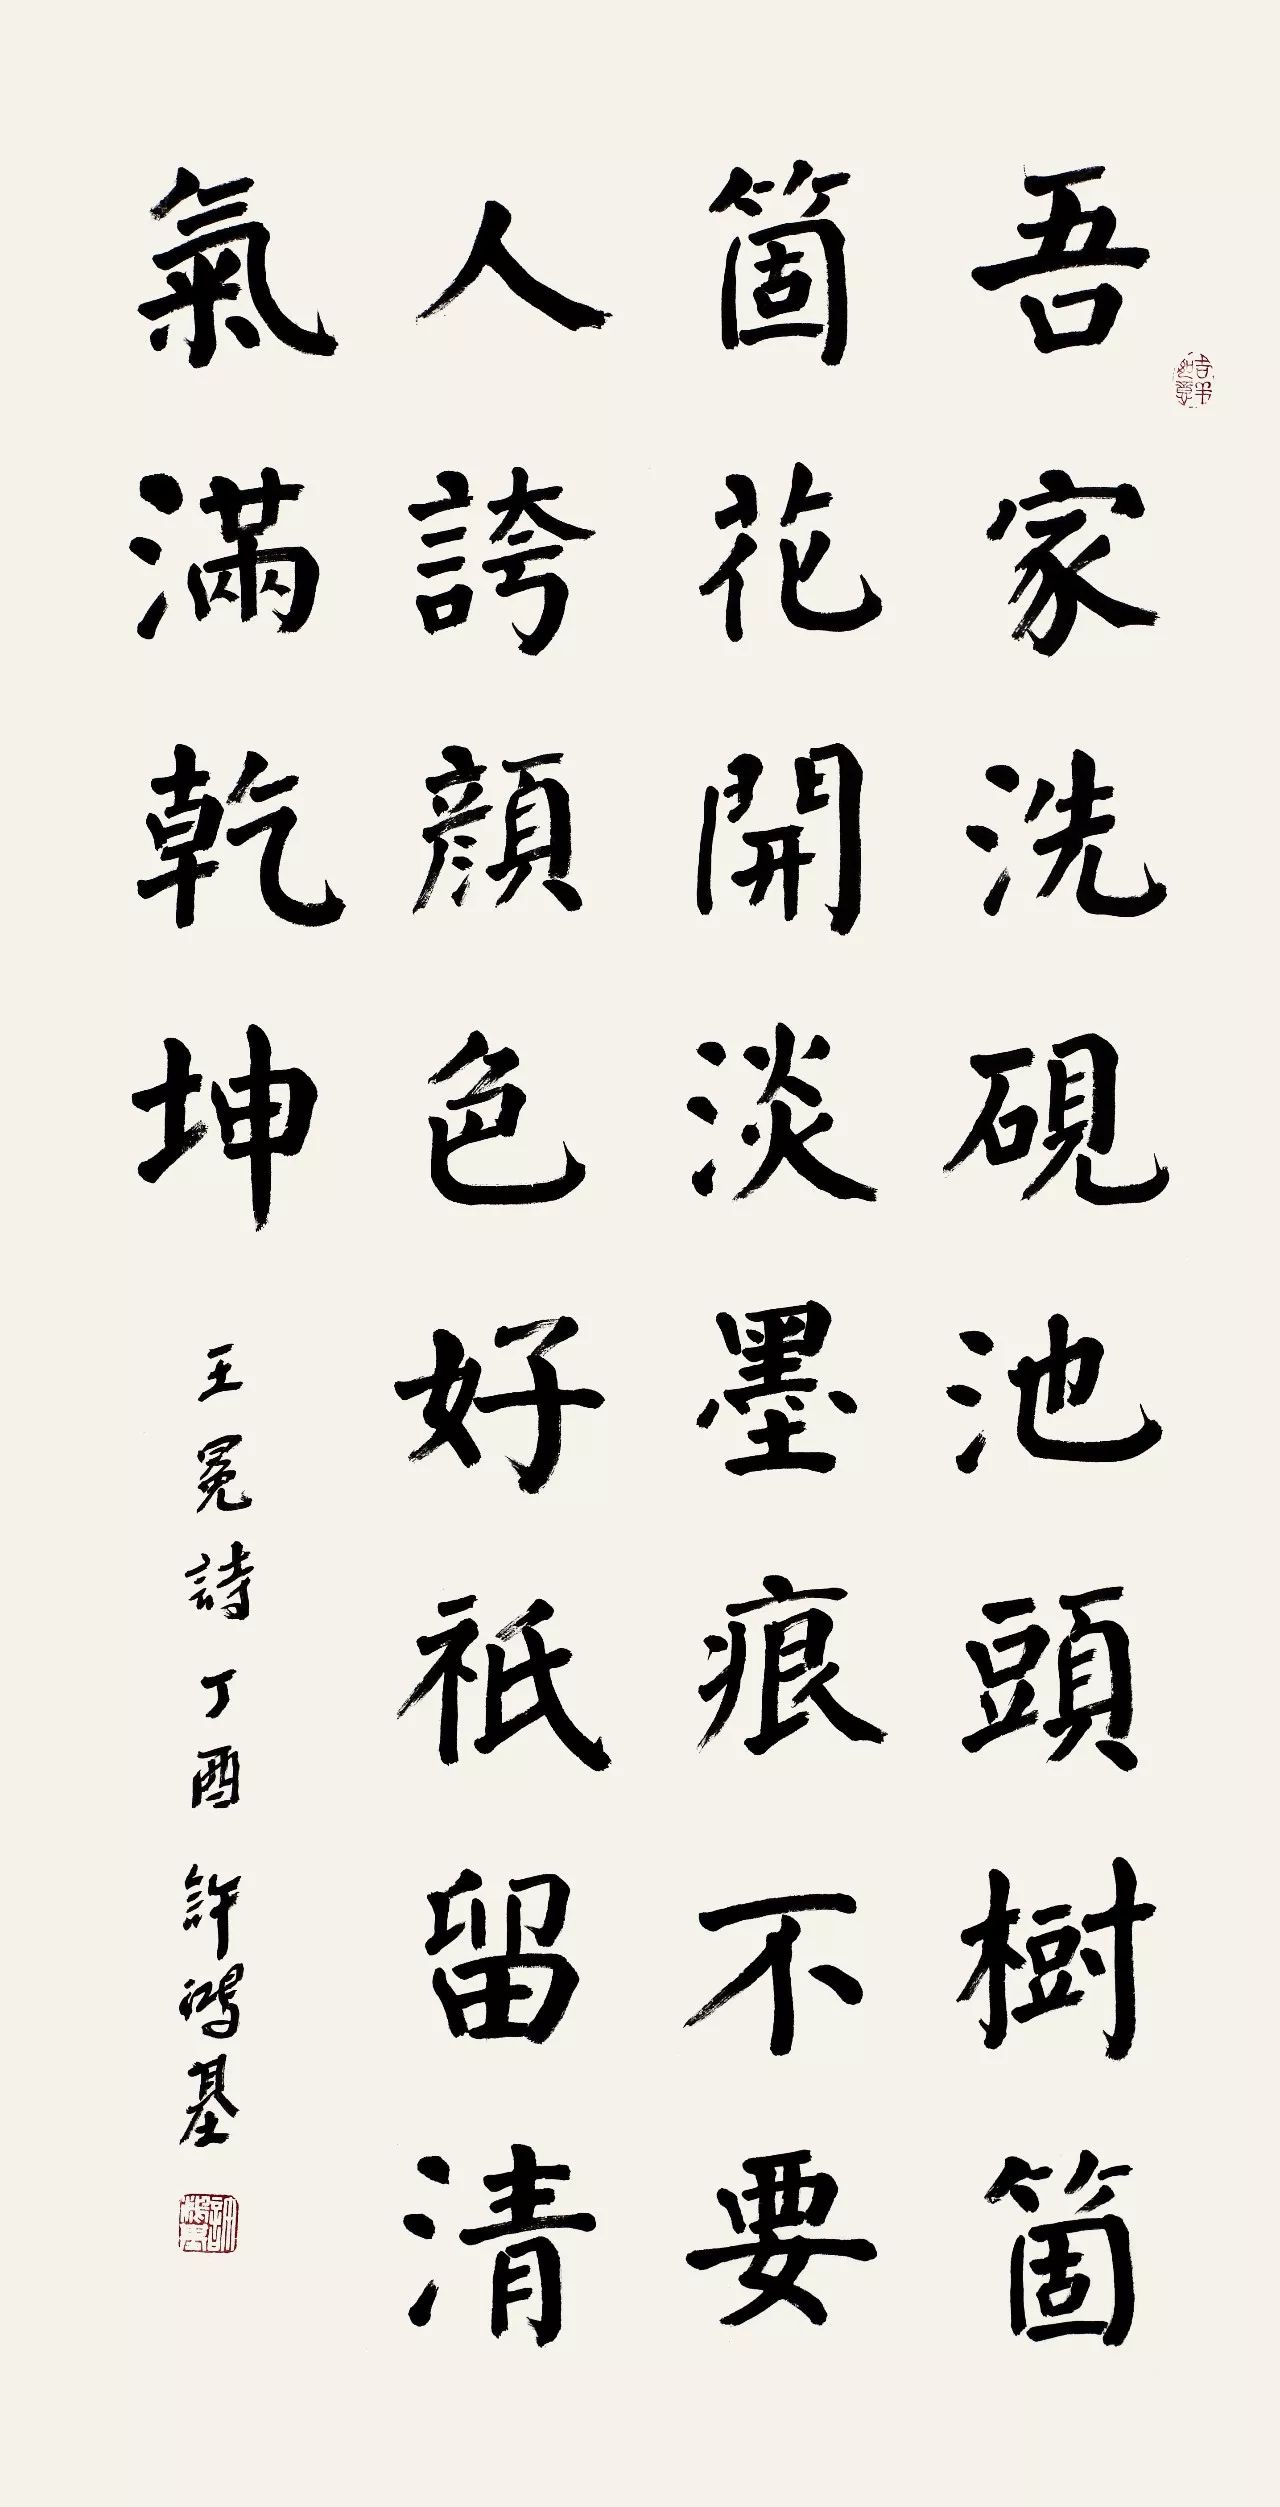 吾家洗硯池頭樹箇
箇花開淡墨痕不要
人誇顔色好祇留清
氣滿乾坤
王冕詩丁酉許鴻基
吉祥如意
許鴻基